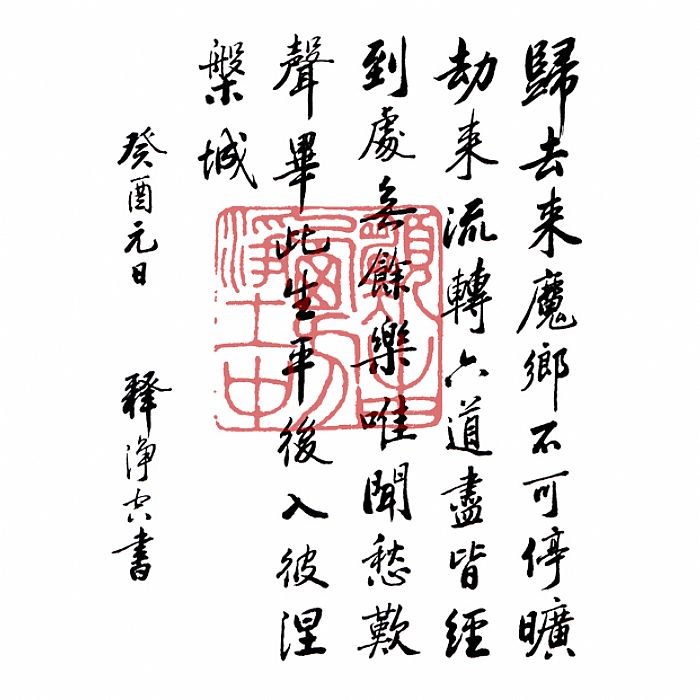 歸去来魔鄉不可停曠
劫来流轉六道盡皆經
到處無餘樂唯聞愁歎
聲畢此生平後入彼涅
槃城
癸酉元日
釋淨空書
願生
西方
淨土中